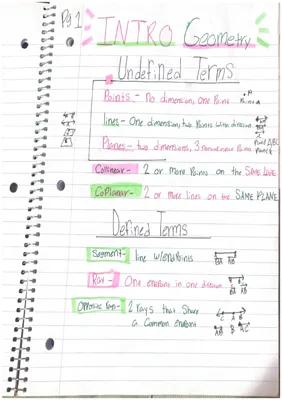 Pg 1
INTRO Geometry
Undefined Terms
Points - No dimension, One Point
Point A
lines - One dimension, two Points with direction
Planes - two dimensions, 3
Collinear - 2 or more Points on the SAME LINE
CoPlanar - 2 or more lines on the SAME PLANE
Defined Terms
Segment - line w/endpoints
Ray - One endpoint in one direction
Opposite Rays - 2 rays that Share
a Common endpoint